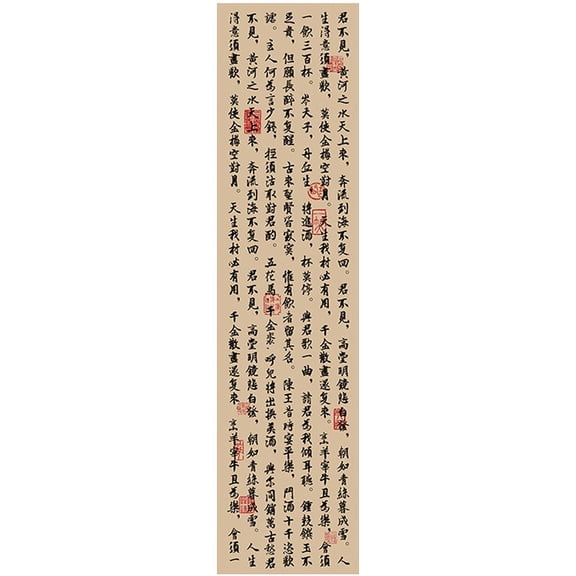 君不見，黃河之水天上來，奔流到海不复回。君不見，高堂明鏡悲白發，朝如青絲暮成雪。人
生得意須盡歡，莫使金樽空對月。天生我材必有用，千金散盡還复來。烹羊宰牛且為樂，會須
一飲三百杯。岑夫子，丹丘生，將進酒，杯莫停。與君歌一曲，請君為我傾耳聽。鐘鼓饌玉不
足貴，但願長醉不复醒。古來聖賢皆寂寞，惟有飲者留其名。陳王昔時宴平樂，鬥酒十千恣歡
謔。主人何為言少錢，徑須沽取對君酌。五花馬，千金裘，呼兒將出換美酒，與尔同銷萬古愁君
不見，黃河之水天上來，奔流到海不复回。君不見，高堂明鏡悲白發，朝如青絲暮成雪。人生
得意須盡歡，莫使金樽空對月。天生我材必有用，千金散盡還复來。烹羊宰牛且為樂，會須一